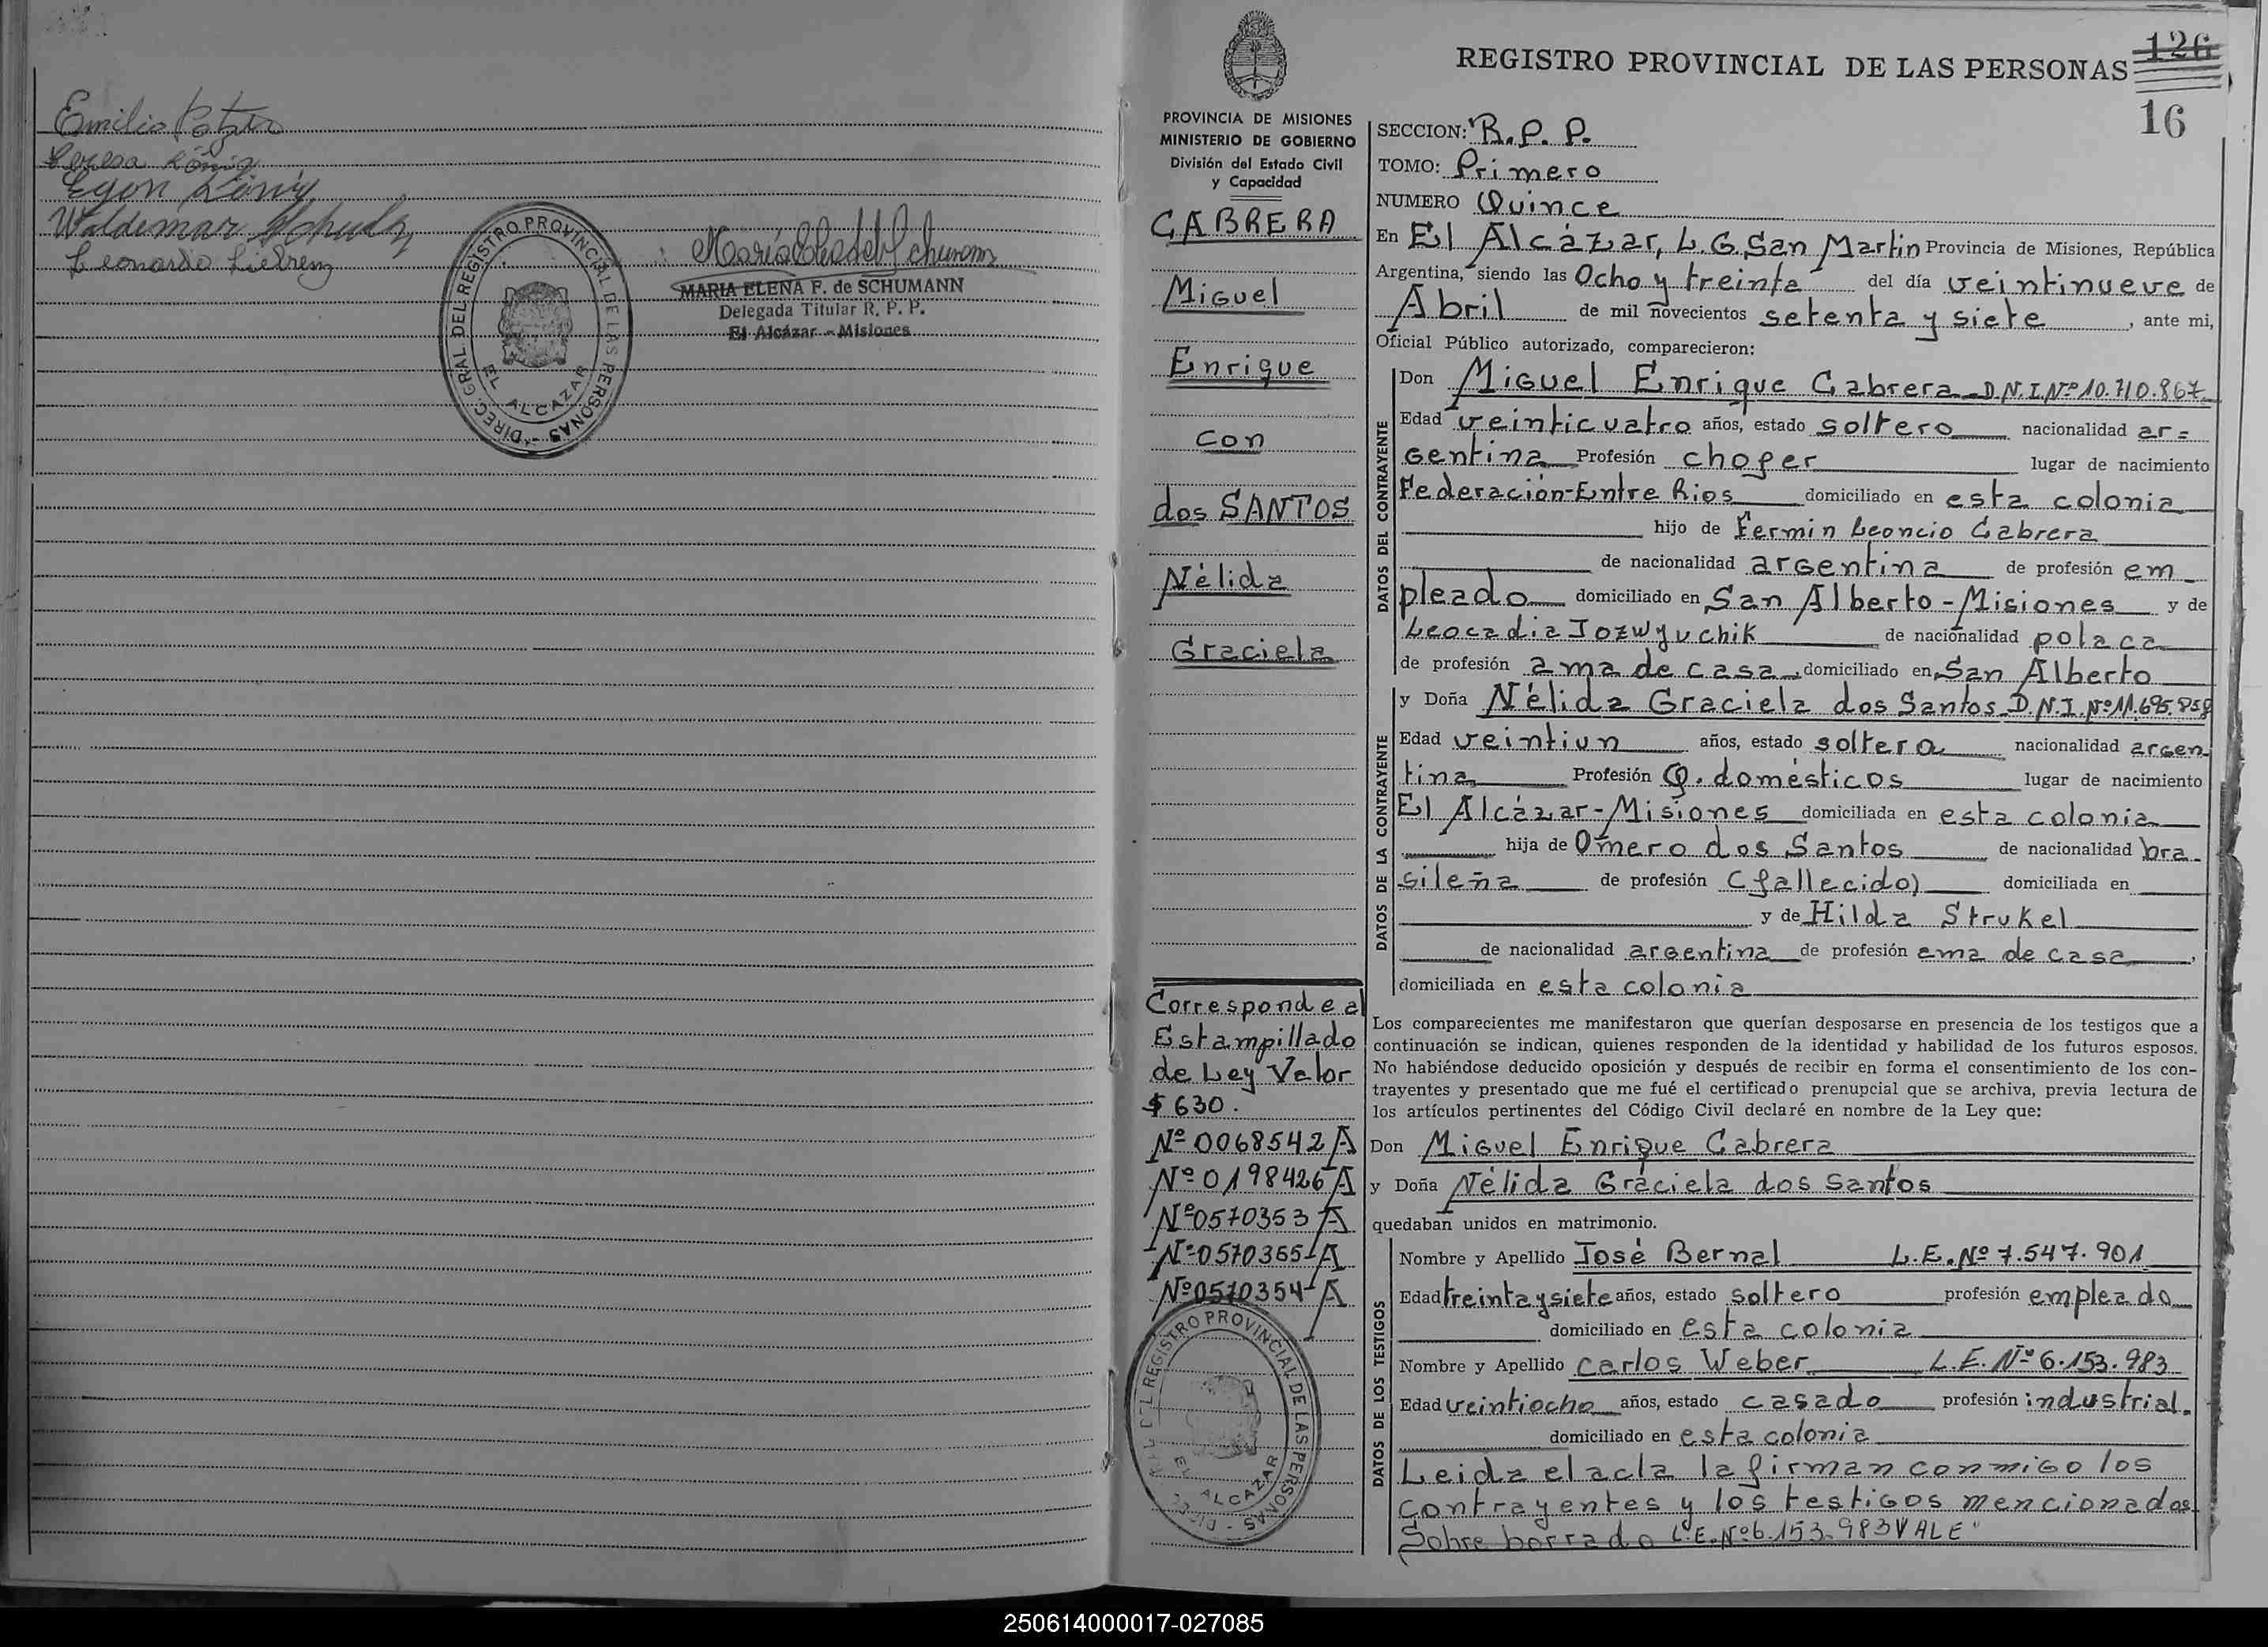 Emilio
Teresa König
Egon König
Waldemar Schulz
Leonardo
DIREC. GRAL DEL REGISTRO PROVINCIAL DE LAS PERSONAS -
EL ALCAZAR
MARIA ELENA F. de SCHUMANN
Delegada Titular R. P. P.
El Alcázar - Misiones
REGISTRO PROVINCIAL DE LAS PERSONAS
126
16
PROVINCIA DE MISIONES
MINISTERIO DE GOBIERNO
División del Estado Civil
y Capacidad
CABRERA
Miguel
Enrique
con
dos SANTOS
Nélida
Graciela
Corresponde al
Estampillado
de Ley Valor
$ 630.
Nº 0068542 A
Nº 0198426 A
Nº 0570353 A
Nº 0570355 A
Nº 0570354 A
DIREC. GRAL DEL REGISTRO PROVINCIAL DE LAS PERSONAS -
EL ALCAZAR
SECCION: R.P.P.
TOMO: Primero
NUMERO Quince
En El Alcázar, L.G.San Martin Provincia de Misiones, República
Argentina, siendo las Ocho y treinta del día veintinueve de
Abril de mil novecientos setenta y siete, ante mi,
Oficial Público autorizado, comparecieron:
DATOS DEL CONTRAYENTE
Don Miguel Enrique Cabrera D.N.I.Nº 10.710.867
Edad veinticuatro años, estado soltero nacionalidad ar=
gentina Profesión chofer lugar de nacimiento
Federación-Entre Rios domiciliado en esta colonia
hijo de Fermin Leoncio Cabrera
de nacionalidad argentina de profesión em_
pleado domiciliado en San Alberto - Misiones y de
Leocadia Jozwyuchik de nacionalidad polaca
de profesión ama de casa, domiciliado en San Alberto
DATOS DE LA CONTRAYENTE
y Doña Nélida Graciela dos Santos D.N.I.Nº 11.695.858
Edad veintiun años, estado soltera nacionalidad argen_
tina Profesión Q. domésticos lugar de nacimiento
El Alcázar-Misiones domiciliada en esta colonia
hija de Omero dos Santos de nacionalidad bra_
sileña de profesión (fallecido) domiciliada en
y de Hilda Strukel
de nacionalidad argentina de profesión ama de casa,
domiciliada en esta colonia
Los comparecientes me manifestaron que querían desposarse en presencia de los testigos que a
continuación se indican, quienes responden de la identidad y habilidad de los futuros esposos.
No habiéndose deducido oposición y después de recibir en forma el consentimiento de los con-
trayentes y presentado que me fué el certificado prenupcial que se archiva, previa lectura de
los artículos pertinentes del Código Civil declaré en nombre de la Ley que:
Don Miguel Enrique Cabrera
y Doña Nélida Graciela dos Santos
quedaban unidos en matrimonio.
DATOS DE LOS TESTIGOS
Nombre y Apellido José Bernal L.E.Nº 7.547.901
Edad treinta y siete años, estado soltero profesión empleado
domiciliado en esta colonia
Nombre y Apellido Carlos Weber L.E. Nº 6.153.983
Edad veintiocho años, estado casado profesión industrial.
domiciliado en esta colonia
Leida el acta la firman conmigo los
contrayentes y los testigos mencionados
Sobre borrado L.E.Nº 6.153.983 VALE
250614000017-027085